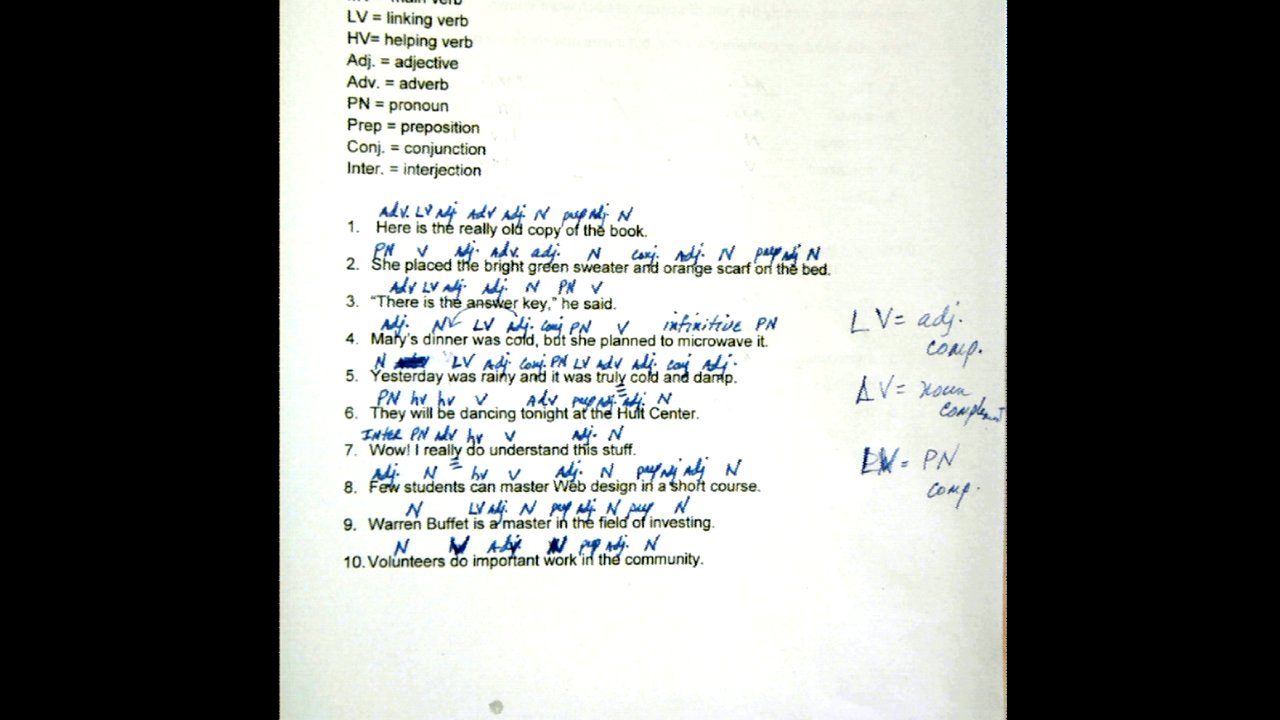 main verb
LV = linking verb
HV= helping verb
Adj. = adjective
Adv. = adverb
PN = pronoun
Prep = preposition
Conj. = conjunction
Inter. = interjection
Adv. LV Adj Adv Adj. N prep Adj. N
1. Here is the really old copy of the book.
PN V Adj. Adv. adj. N conj. Adj. N prep Adj N
2. She placed the bright green sweater and orange scarf on the bed.
Adv LV adj. Adj. N PN V
3. “There is the answer key,” he said.
Adj. N LV Adj. conj PN V infinitive PN
4. Mary's dinner was cold, but she planned to microwave it.
N LV Adj conj. PN LV Adv Adj. conj Adj.
5. Yesterday was rainy and it was truly cold and damp.
PN hv hv V Adv prep Adj. adj. N
6. They will be dancing tonight at the Hult Center.
Inter PN adv hv V Adj. N
7. Wow! I really do understand this stuff.
Adj. N hv V Adj. N prep Adj Adj N
8. Few students can master Web design in a short course.
N LV Adj. N prep Adj N prep N
9. Warren Buffet is a master in the field of investing.
N V Adj. N prep Adj. N
10. Volunteers do important work in the community.
LV= adj.
comp.
LV= noun
complement
LV= PN
comp.